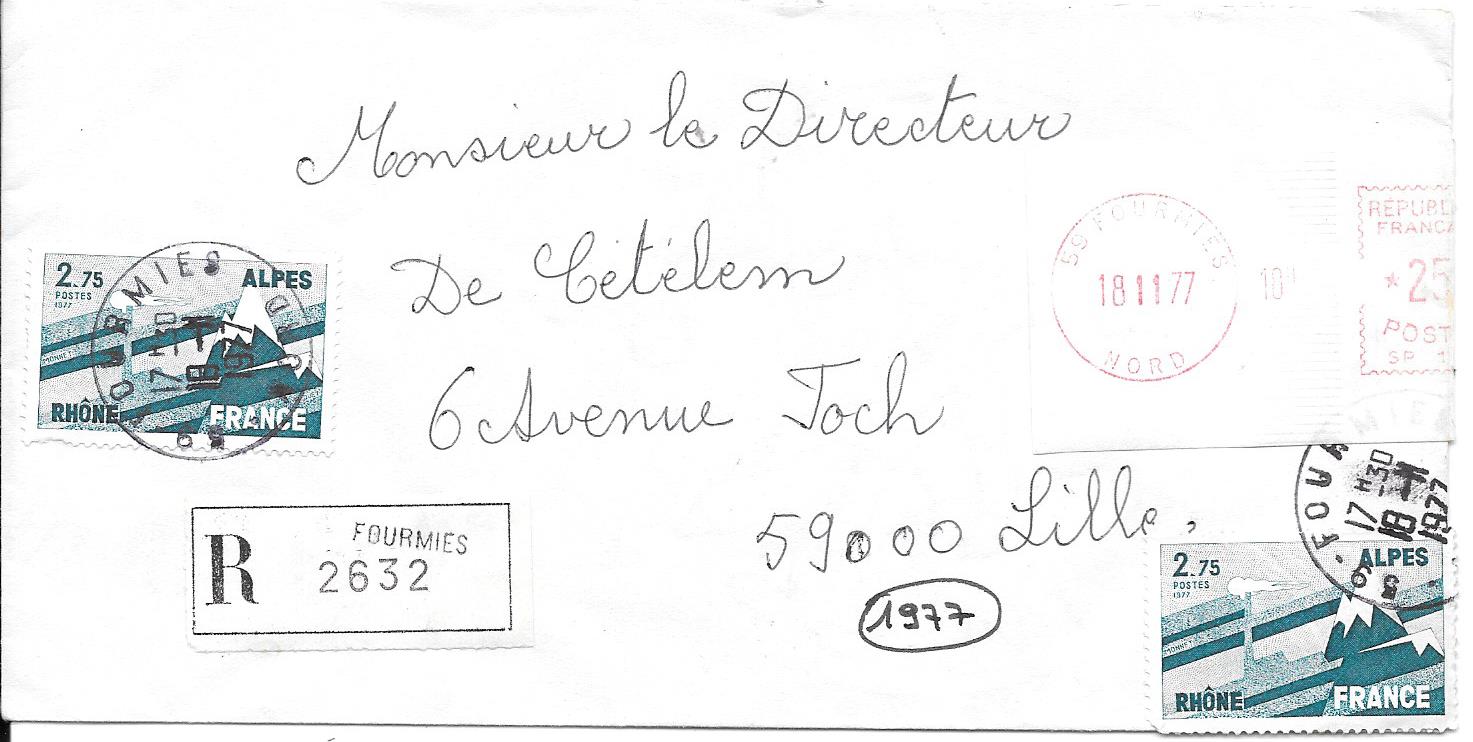 Monsieur le Directeur
De Cételem
6 Avenue Foch
59000 Lille,
1977
59 FOURMIES
18 11 77
NORD
RÉPUBL
FRANCA
*25
POST
SP 1
2.75
POSTES
1977
ALPES
MONNET
RHÔNE
FRANCE
FOURMIES NORD
17 H30
18 - 11
1977
59
R
FOURMIES
2632
FOUR MIE
17 H30
18 - 11
1977
59
2.75
POSTES
1977
ALPES
MONNET
RHÔNE
FRANCE